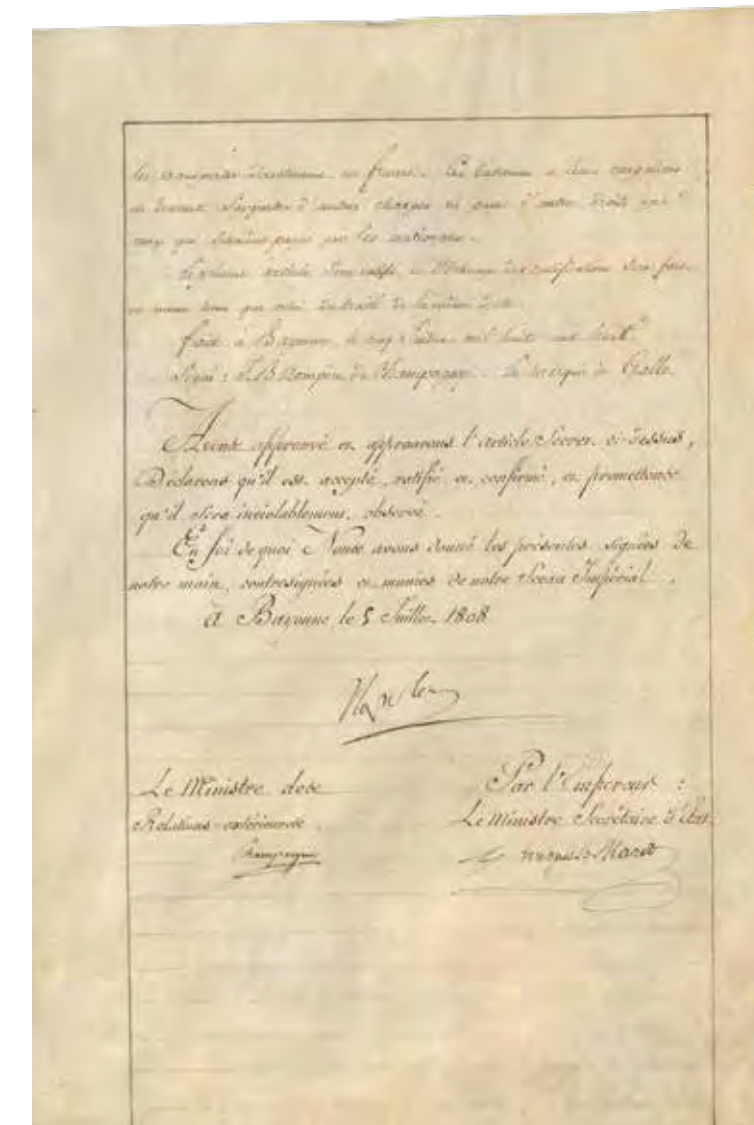 en France. Les bâtimens et leurs cargaisons
ne seront d'autres charges ni à d'autres droits que
ceux qui seraient payés par les nationaux.
Le présent article sera ratifié et l'échange des ratifications sera fait
en même tems que celui du traité de la même date.
fait à Bayonne le cinq Juillet mil huit cent huit
Signé : de Champagny. Le Marquis de Gallo.
Avons approuvé et approuvons l'article Secret ci-dessus,
Déclarons qu'il est accepté, ratifié et confirmé, et promettons
qu'il sera inviolablement observé.
En foi de quoi Nous avons donné les présentes signées de
notre main, contresignées et munies de notre Sceau Impérial.
à Bayonne le 5 Juillet 1808
Le Ministre des
Relations extérieures
Champagny
Par l'Empereur :
Le Ministre Secrétaire d'Etat
hugues b. Maret